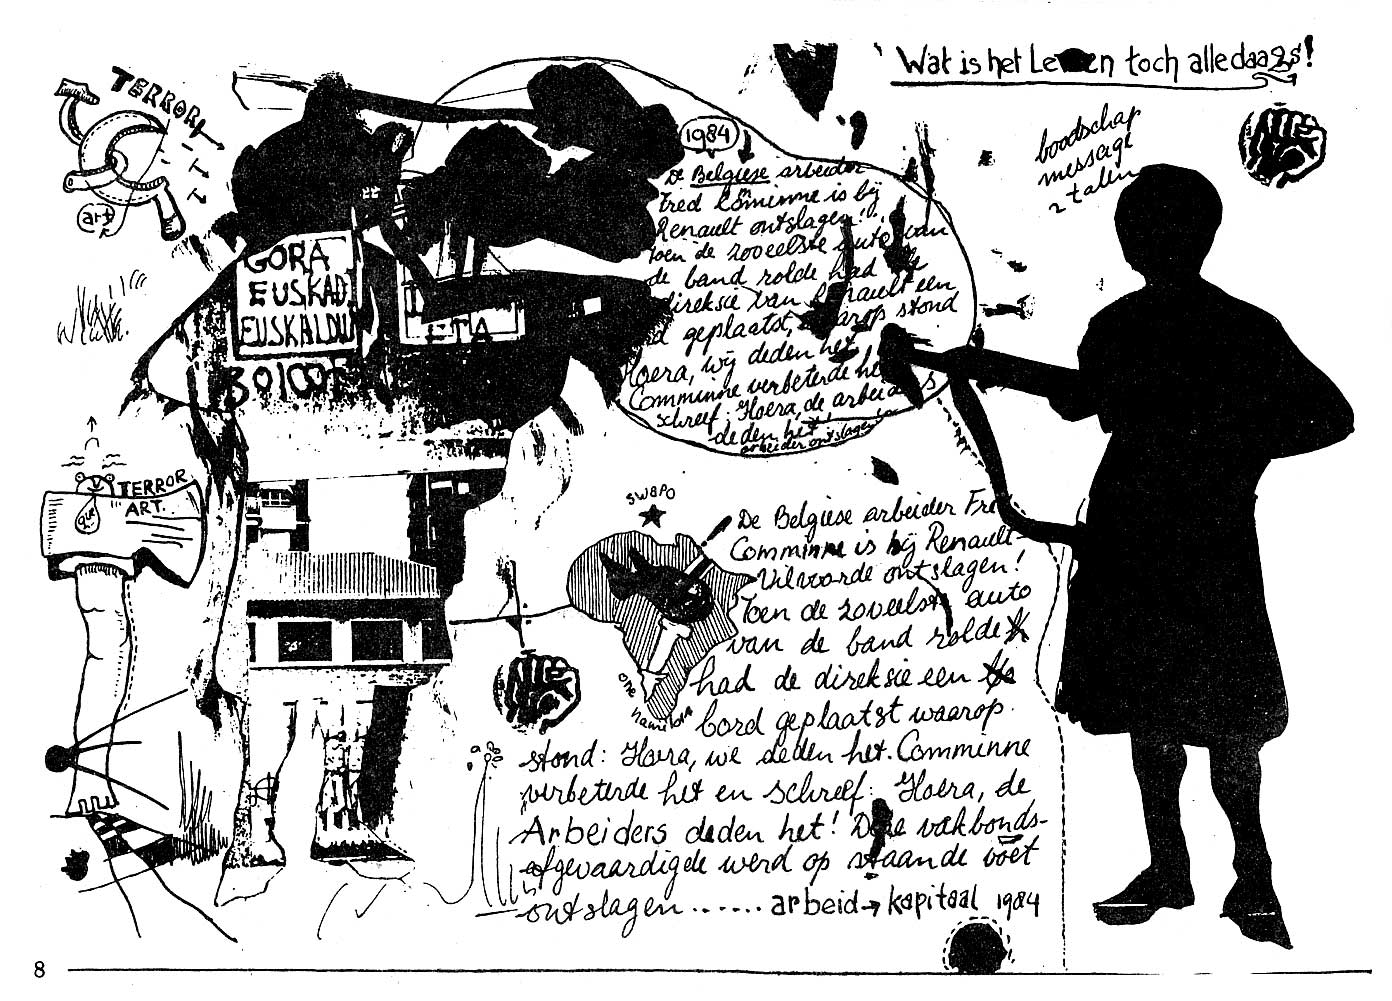 Wat is het Leven toch alledaags!
TERROR!
art
boodschap
message
2 talen
NIET
1984
De Belgiese arbeider
Fred Comminne is bij
Renault ontslagen!
Toen de zoveelste auto van
de band rolde had de
direksie van Renault een
geplaatst, waarop stond
Hoera, wij deden het
Comminne verbeterde het
schreef: Hoera, de arbeiders
deden het
arbeider ontslagen
GORA
EUSKADI
EUSKALDU
BOICOT
ETA
TERROR
ART.
que
SWAPO
one
namibia
De Belgiese arbeider Fre
Comminne is bij Renault-
Vilvoorde ontslagen!
Toen de zoveelste auto
van de band rolde
had de direksie een
bord geplaatst waarop
stond: Hoera, we deden het. Comminne
verbeterde het en schreef: Hoera, de
Arbeiders deden het! Deze vakbonds-
afgevaardigde werd op staande voet
ontslagen...... arbeid → kapitaal 1984
8